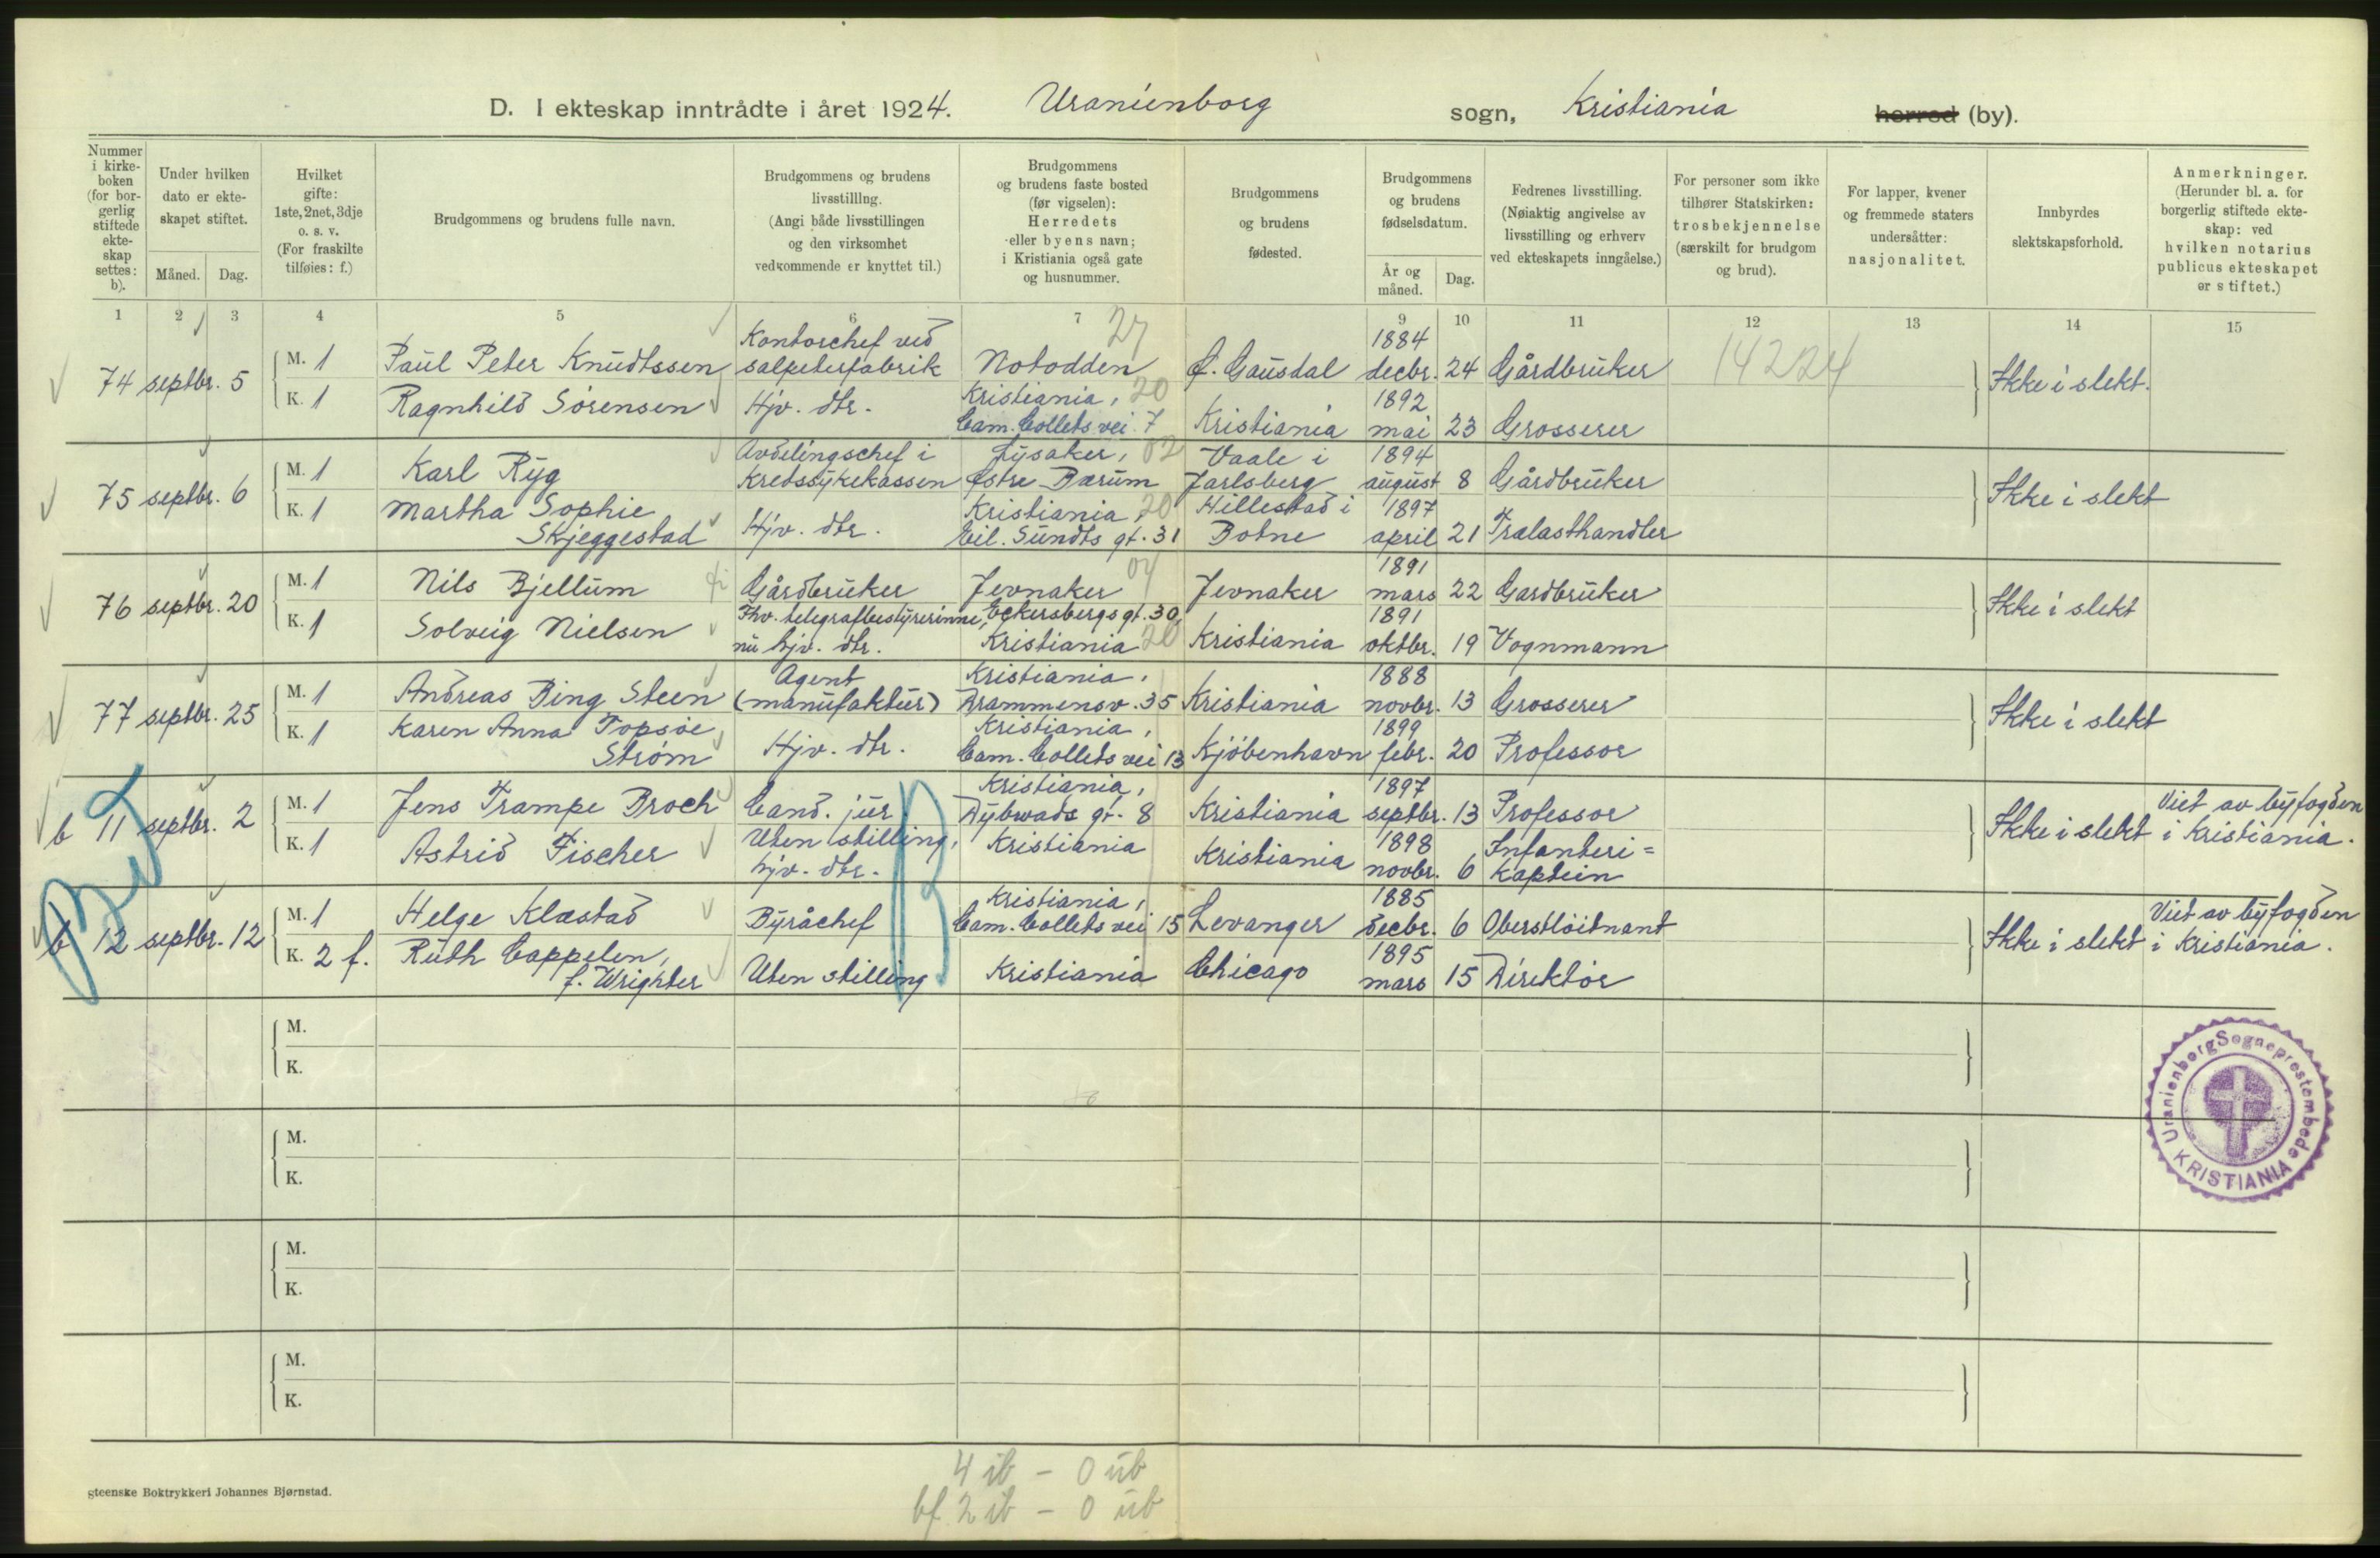 D. I ekteskap inntrådte i året 1924. Uranienborg sogn, Kristiania herred (by).
Nummer i kirkeboken (for borgerlig stiftede ekteskap settes: b).
Under hvilken dato er ekteskapet stiftet.
Måned. Dag.
Hvilket gifte: 1ste, 2net, 3dje o. s. v. (For fraskilte tilføies: f.)
Brudgommens og brudens fulle navn.
Brudgommens og brudens livsstilllng. (Angi både livsstillingen og den virksomhet vedkommende er knyttet til.)
Brudgommens og brudens faste bosted (før vigselen): Herredets eller byens navn; i Kristiania også gate og husnummer.
Brudgommens og brudens fødested.
Brudgommens og brudens fødselsdatum.
År og måned. Dag.
Fedrenes livsstilling. (Nøiaktig angivelse av livsstilling og erhverv ved ekteskapets inngåelse.)
For personer som ikke tilhører Statskirken: trosbekjennelse (særskilt for brudgom og brud).
For lapper, kvener og fremmede staters undersåtter: nasjonalitet.
Innbyrdes slektskapsforhold.
Anmerkninger. (Herunder bl. a. for borgerlig stiftede ekteskap: ved hvilken notarius publicus ekteskapet er stiftet.)
1 2 3 4 5 6 7 9 10 11 12 13 14 15
74 septbr. 5 M. 1 Paul Peter Knudtssen Kontorchef ved salpeterfabrik Notodden 27 Ø. Gausdal 1884 decbr. 24 Gårdbruker 14224 Ikke i slekt.
K. 1 Ragnhild Sörensen Hjv. dtr. Kristiania, 20 Cam. Collets vei 7 Kristiania 1892 mai 23 Grosserer
75 septbr. 6 M. 1 Karl Ryg Avdelingschef i Kredssykekassen Lysaker, 02 Østre Bærum Vaale i Jarlsberg 1894 august 8 Gårdbruker Ikke i slekt
K. 1 Martha Sophie Skjeggestad Hjv. dtr. Kristiania, 20 Eil. Sundts gt. 31 Hillestad i Botne 1897 april 21 Trælasthandler
76 septbr. 20 M. 1 Nils Bjellum Gårdbruker Jevnaker 04 Jevnaker 1891 mars 22 Gardbruker Ikke i slekt
K. 1 Solveig Nielsen Fhv. telegrafbestyrerinne, nu hjv. dtr. Eckersbergs gt. 30, Kristiania 20 Kristiania 1891 oktbr. 19 Vognmann
77 septbr. 25 M. 1 Andreas Bing Steen Agent (manufaktur) Kristiania, Drammensv. 35 Kristiania 1888 novbr. 13 Grosserer Ikke i slekt
K. 1 Karen Anna Topsøe Strøm Hjv. dtr. Kristiania, Cam. Collets vei 13 Kjöbenhavn 1899 febr. 20 Professor
b 11 septbr. 2 M. 1 Jens Trampe Broch Cand. jur Kristiania, Dybwads gt. 8 Kristiania 1897 septbr. 13 Professor Ikke i slekt Viet av byfogden i Kristiania.
K. 1 Astrid Fischer Uten stilling, hjv. dtr. Kristiania Kristiania 1898 novbr. 6 Infanteri= kaptein
b 12 septbr. 12 M. 1 Helge Klæstad Byråchef Kristiania, Cam. Collets vei 15 Levanger 1885 decbr. 6 Oberstlöitnant Ikke i slekt Viet av byfogden i Kristiania.
K. 2 f. Ruth Cappelen, f. Wrighter Uten stilling Kristiania Chicago 1895 mars 15 Direktör
M.
K.
M.
K.
M.
K.
M.
K.
Uranienborg Sogneprestembede KRISTIANIA
4 ib - 0 ub
bf. 2 ib - 0 ub
gteenske Boktrykkeri Johannes Bjørnstad.